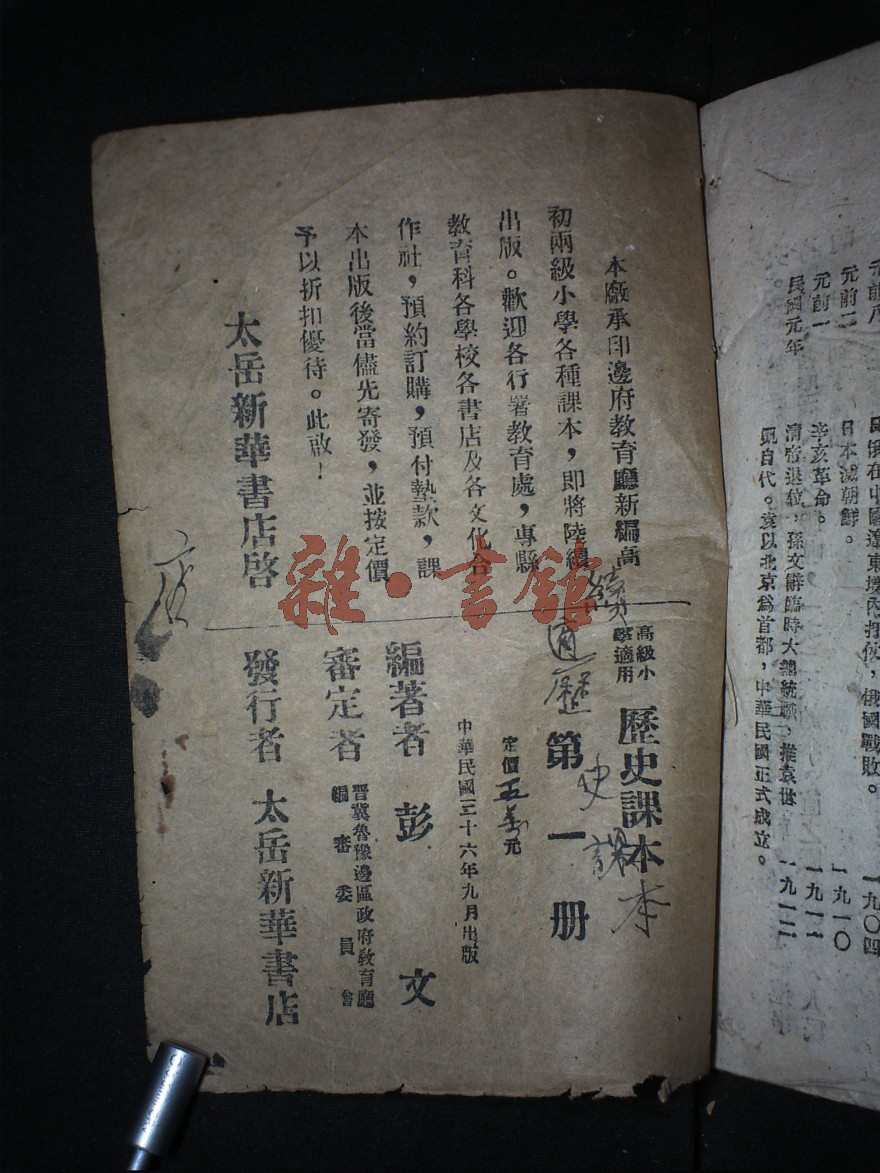 本廠承印邊府教育廳新編高
初兩級小學各種課本，即將陸續
出版。歡迎各行署教育處，專縣
教育科各學校各書店及各文化合
作社，預約訂購，預付墊款，課
本出版後當儘先寄發，並按定價
予以折扣優待。此啟！
太岳新華書店啓
高級小學適用
歷史課本
第一册
定價五萬元
中華民國三十六年九月出版
編著者 彭文
審定者 晋冀魯豫邊區政府教育廳
編審委員會
發行者 太岳新華書店
歷
史
課
本
雜·書館
元前八
元前二
元前一
民國元年
日俄在中國遼東境內打仗，俄國戰敗。 一九〇四
日本滅朝鮮。 一九一〇
辛亥革命。 一九一一
清帝退位，孫文辭臨時大總統職，推袁世
凱自代。袁以北京爲首都，中華民國正式成立。 一九一二